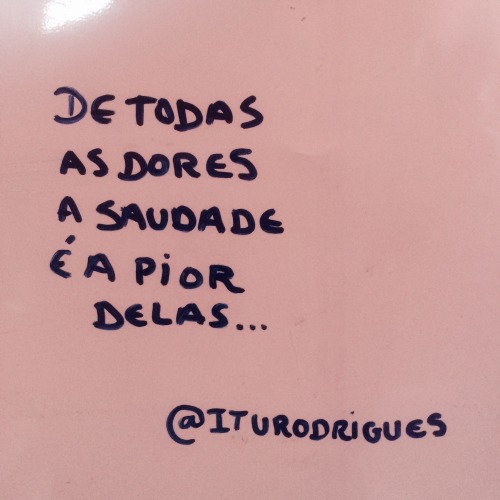 DE TODAS
AS DORES
A SAUDADE
É A PiOR
DELAS...
@ITURODRiGUES